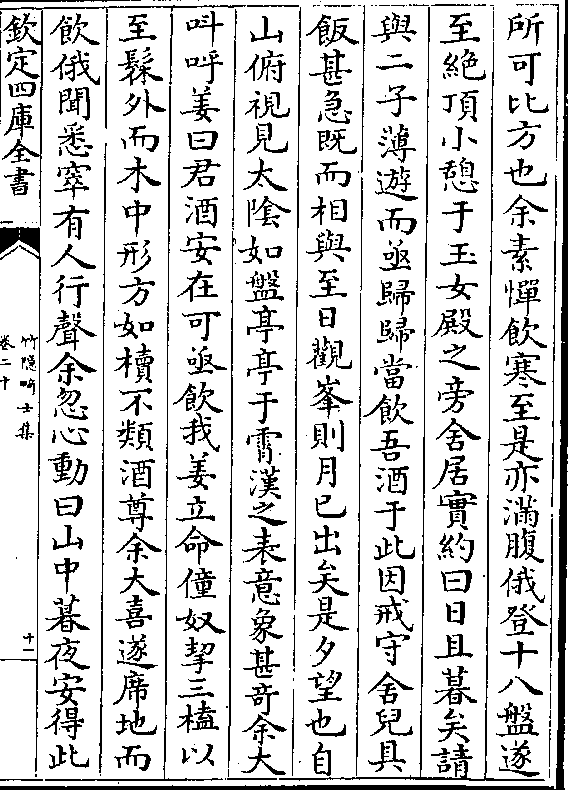 所可比方也余素憚飲寒至是亦滿腹俄登十八盤遂
至絶頂小憩于玉女殿之旁舍居實約曰日且暮矣請
與二子薄遊而亟歸歸當飲吾酒于此因戒守舍兒具
飯甚急既而相與至日觀峯則月已出矣是夕望也自
山俯視見太陰如盤亭亭于霄漢之表意象甚竒余大
呌呼姜曰君酒安在可亟飲我姜立命僮奴挈三榼以
至髹外而木中形方如櫝不類酒尊余大喜遂席地而
飲俄聞悉窣有人行聲余忽心動曰山中暮夜安得此
欽定四庫全書
竹隠畸士集
卷二十
十一